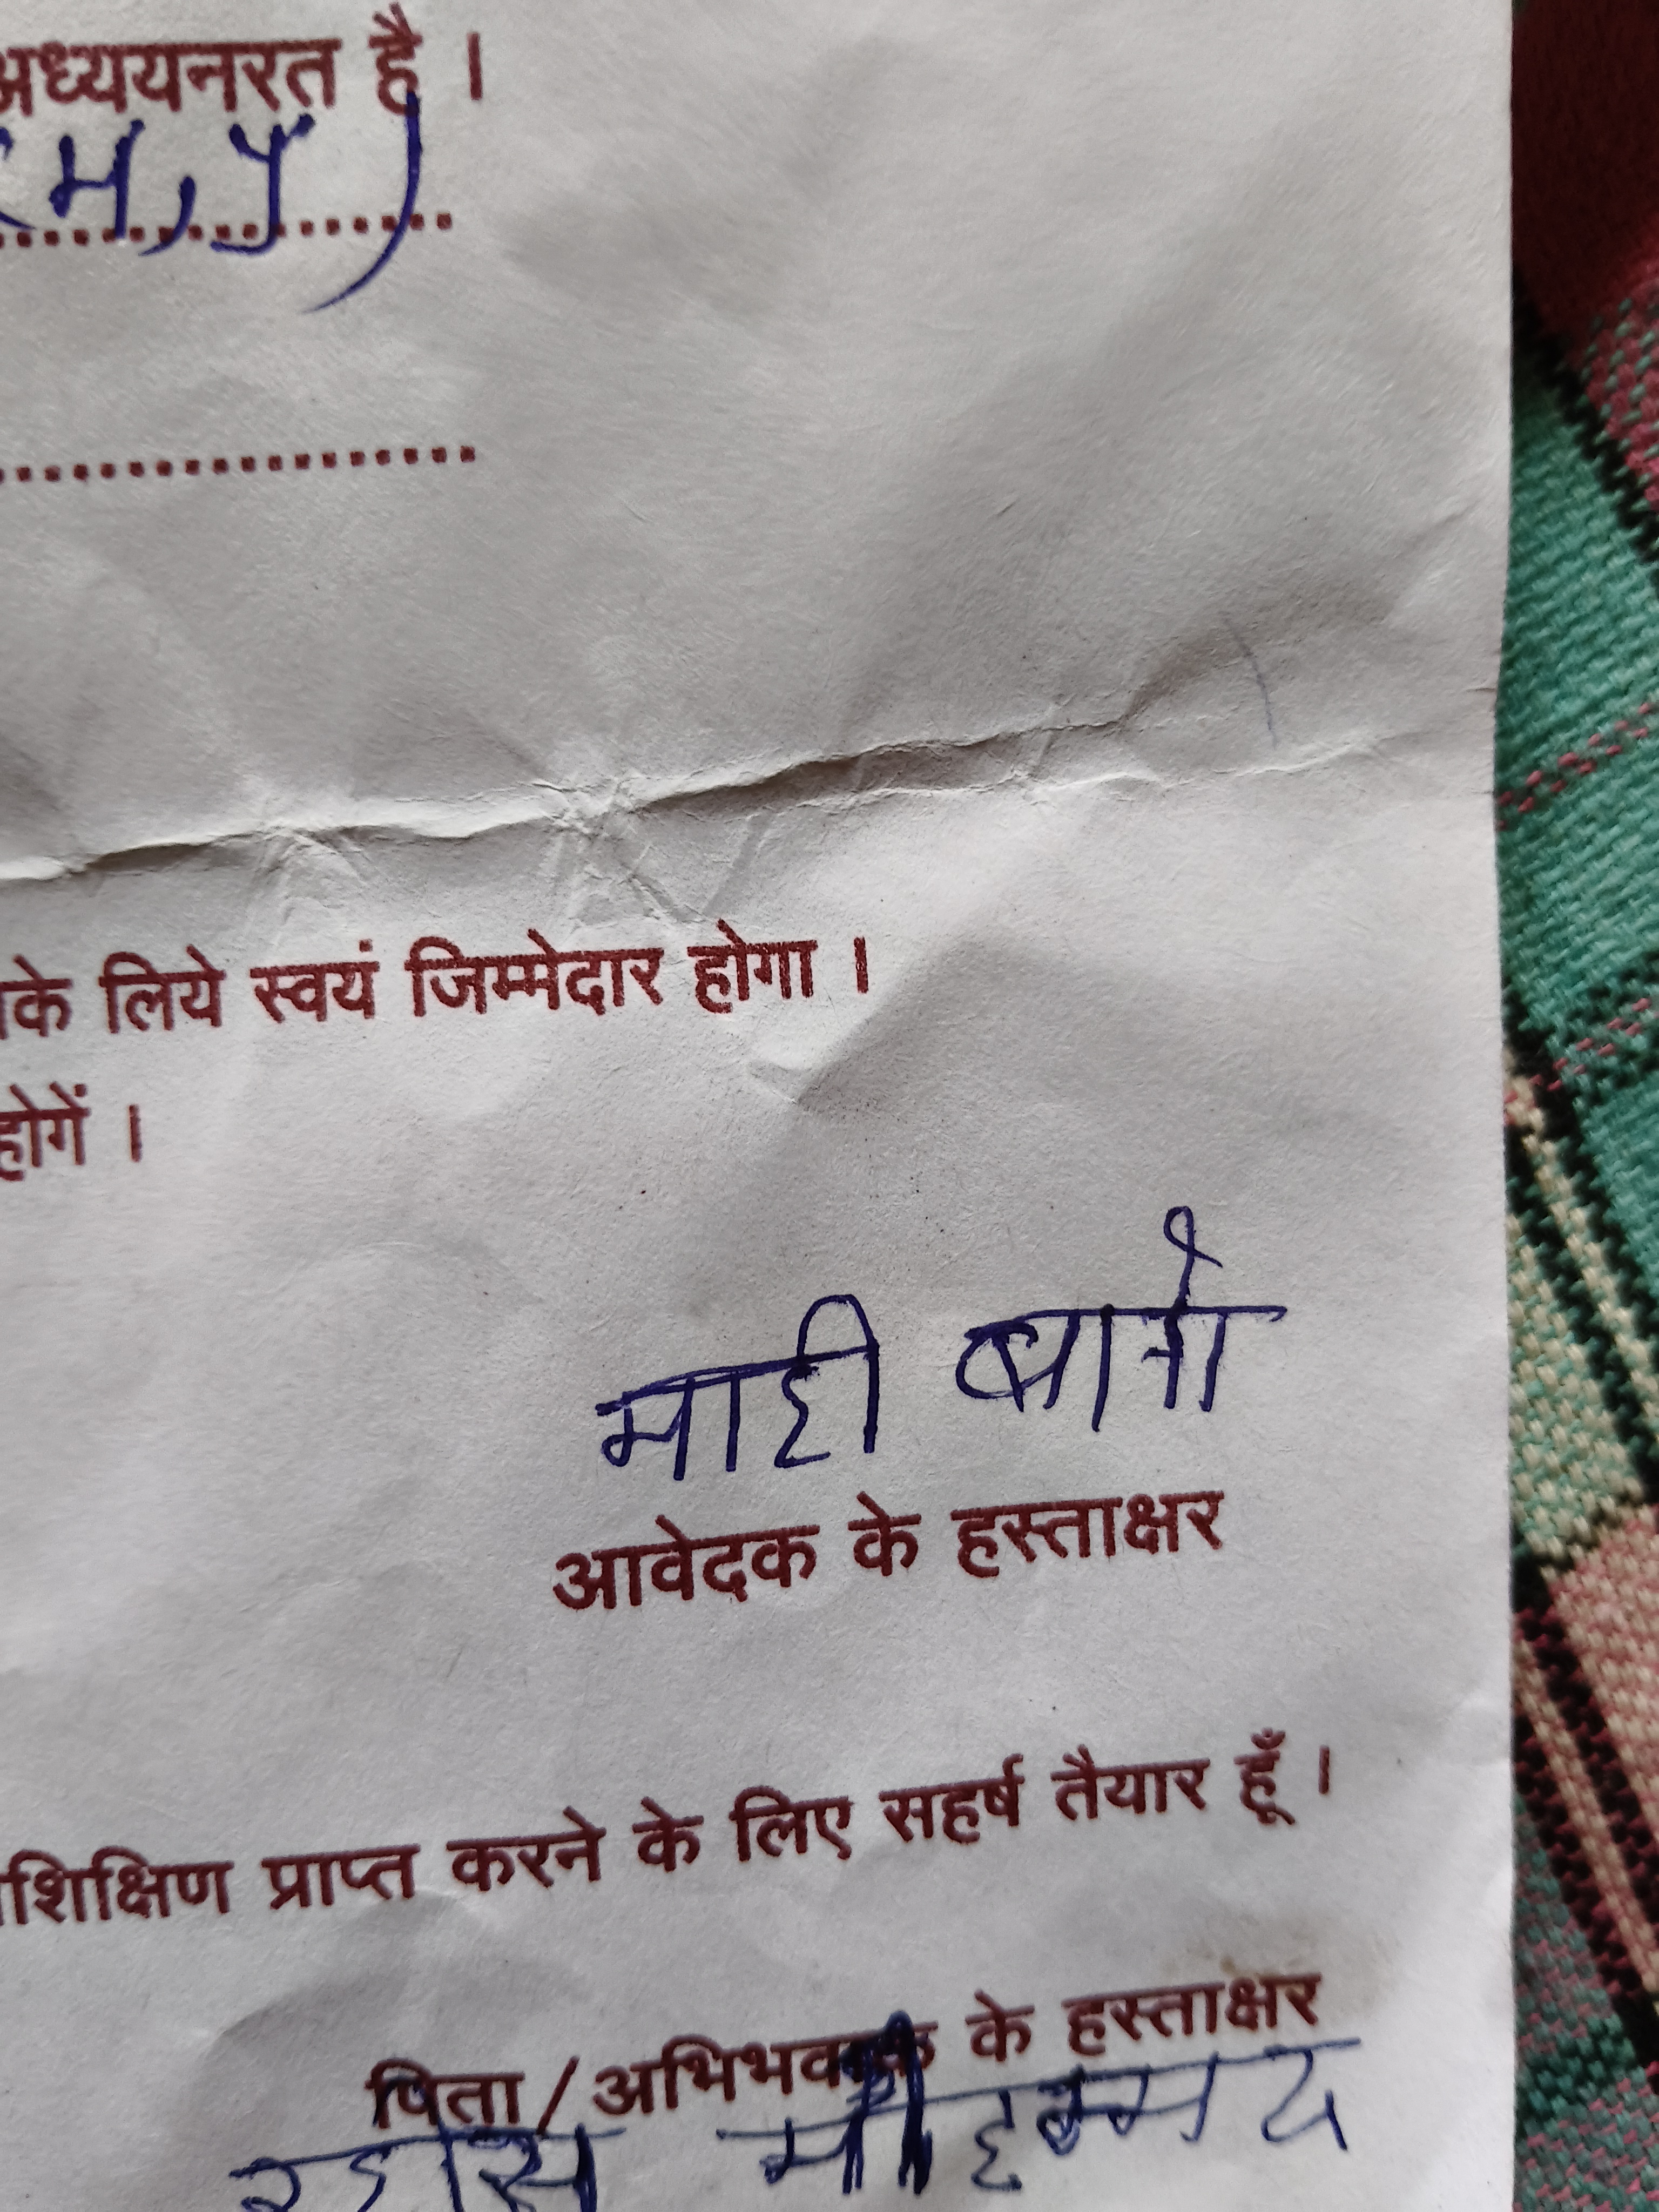 अध्ययनरत है ।
(म,प्र)
के लिये स्वयं जिम्मेदार होगा ।
होगें ।
माही बानो
आवेदक के हस्ताक्षर
शिक्षिण प्राप्त करने के लिए सहर्ष तैयार हूँ ।
पिता/अभिभवक के हस्ताक्षर
मोहम्मद